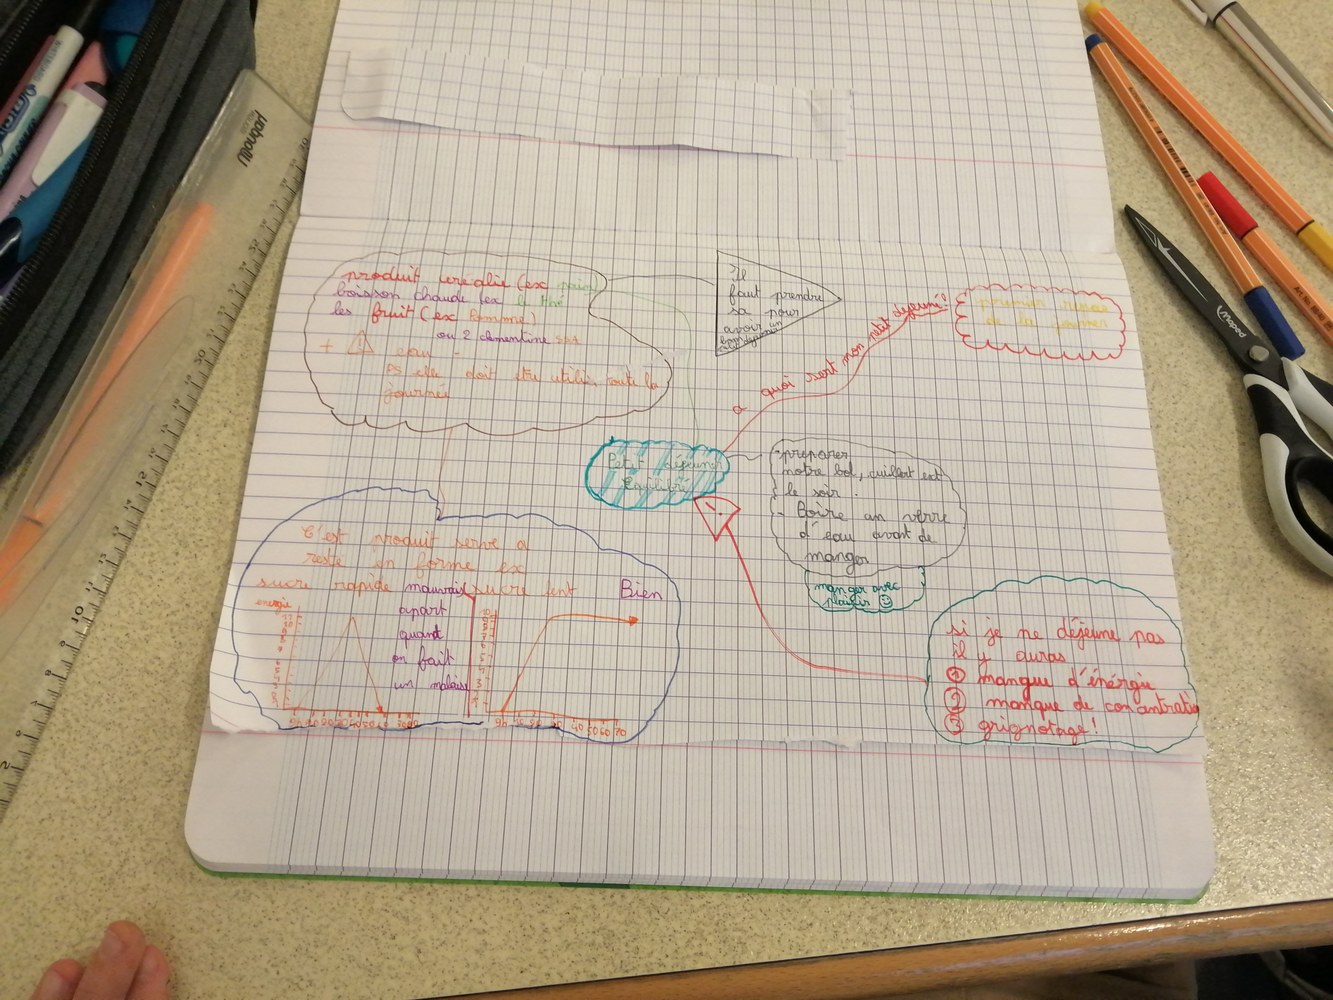 produit cerealie (ex pain
boisson chaude (ex le thé
les fruit (ex Pomme)
ou 2 clementine
+ ! eau -
PS elle doit être utilise toute la
journée
Il
faut prendre
sa pour
avoir un
a quoi sert mon petit dejeuné?
premier repas
de la journer
Petit déjeuner
Equilibré
-preparer
notre bol, cuillere ect
le soir.
- Boire un verre
d'eau avant de
manger
manger avec
plaisir
C'est produit serve a
reste en forme ex
sucre rapide mauvais
apart
quant
on fait
un malaise
sucre lent Bien
energie
si je ne déjeune pas
il y auras
1 manque d'énérgie
2 manque de concantration
3 grignotage!
Maped
Maped